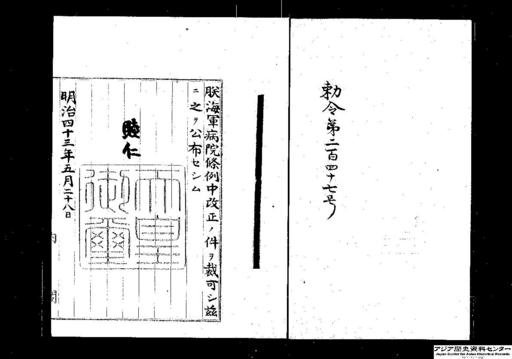 勅令第二百四十七号
朕海軍病院條例中改正ノ件ヲ裁可シ茲
ニ之ヲ公布セシム
睦仁
天皇
御璽
明治四十三年五月二十八日
内閣
アジア歴史資料センター
Japan Center for Asian Historical Records